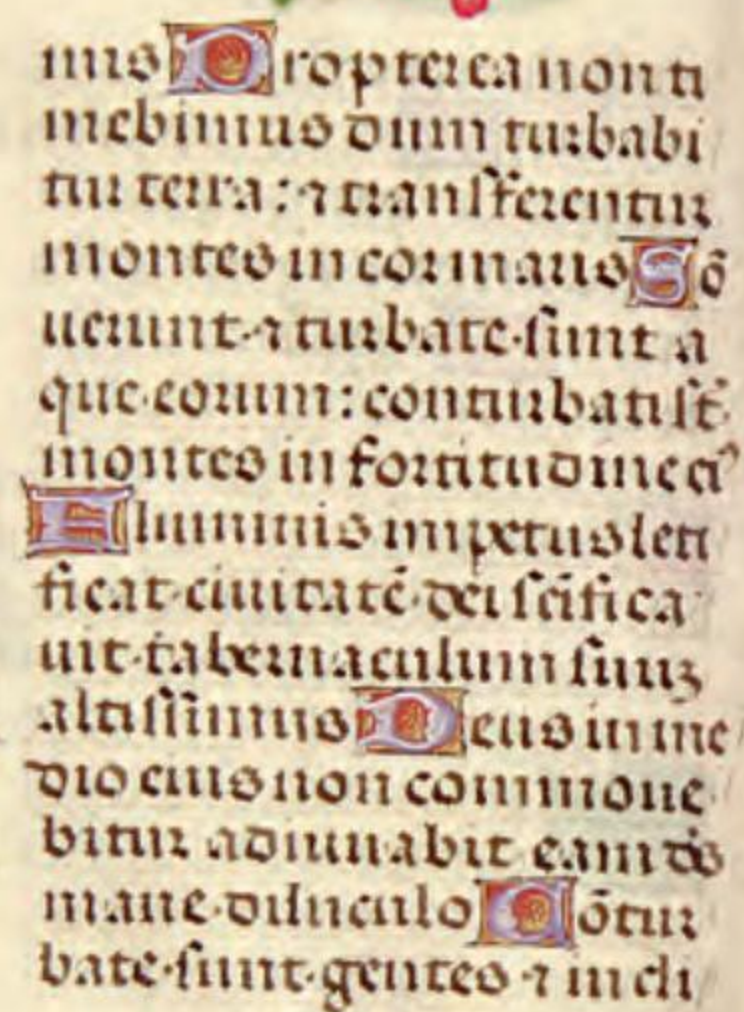 mis Propterea non ti
mebimus dum turbabi
tur terra: ⁊ transferentur
montes in cor maris Sō
uerunt ⁊ turbate·sunt a
que·eorum: conturbati st̄·
montes in fortitudine ei⁹
Fluminis impetus leti
ficat·ciuitatē·dei scīfica
uit·tabernaculum suuꝫ
altissimus Deus in me
dio eius non commoue·
bitur adiuuabit eam dс̄
mane·diluculo Cōtur
bate·sunt·gentes ⁊ incli